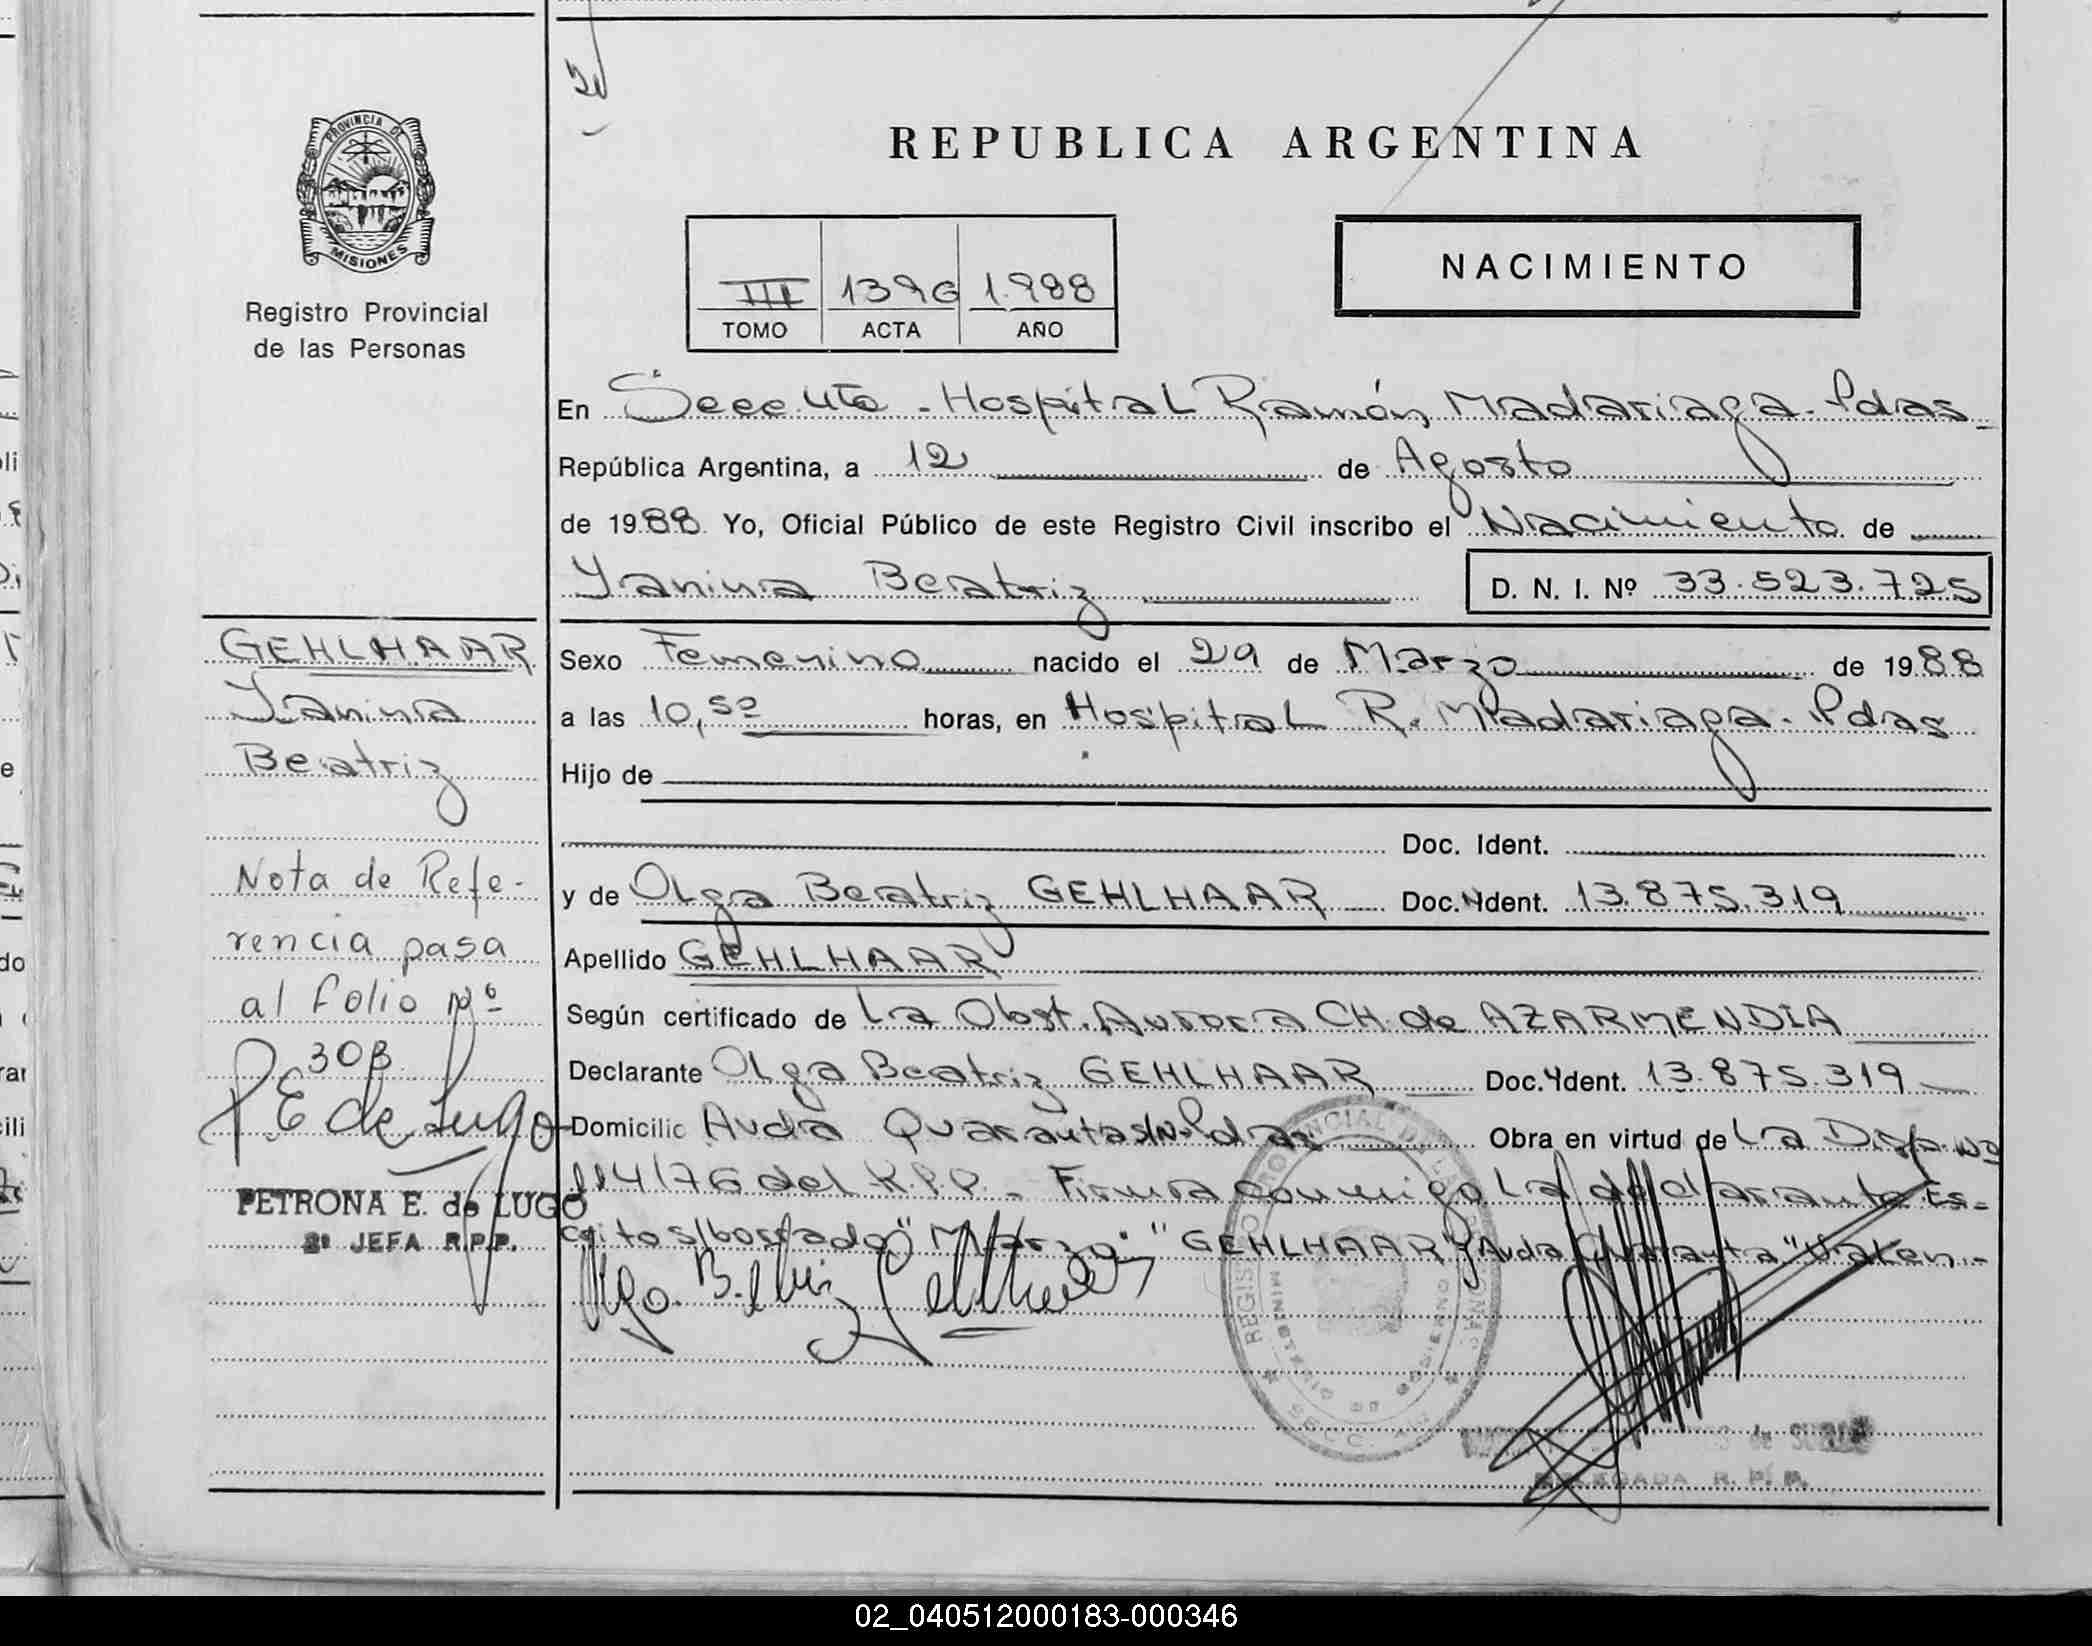 REPUBLICA ARGENTINA
PROVINCIA DE
MISIONES
Registro Provincial
de las Personas
III 1396 1.988
TOMO ACTA AÑO
NACIMIENTO
En Secc. 4ta - Hospital Ramón Madariaga - Pdas
República Argentina, a 12 de Agosto
de 1988 Yo, Oficial Público de este Registro Civil inscribo el Nacimiento de
Yanina Beatriz D. N. I. Nº 33.523.725
Sexo Femenino nacido el 29 de Marzo de 1988
a las 10,50 horas, en Hospital R. Madariaga - Pdas
Hijo de
Doc. Ident.
y de Olga Beatriz GEHLHAAR Doc. Ident. 13.875.319
Apellido GEHLHAAR
Según certificado de La Obst. Aurora CH. de AZARMENDIA
Declarante Olga Beatriz GEHLHAAR Doc. Ident. 13.875.319
Domicilio Avda Quaranta s/Nº Pdas Obra en virtud de La Disp. Nº
114/76 del R.P.P. - Firma conmigo La declarante Es-
critos/borrado "Marzo" "GEHLHAAR" y Avda Quaranta" Valen -
GEHLHAAR
Yanina
Beatriz
Nota de Refe-
rencia pasa
al folio Nº
308
P. E de Lugo
PETRONA E. de LUGO
2ª JEFA R.P.P.
REGISTRO PROVINCIAL DE LAS PERSONAS
MINISTERIO DE GOBIERNO
SECC.
DELEGADA R. P. P.
02_040512000183-000346